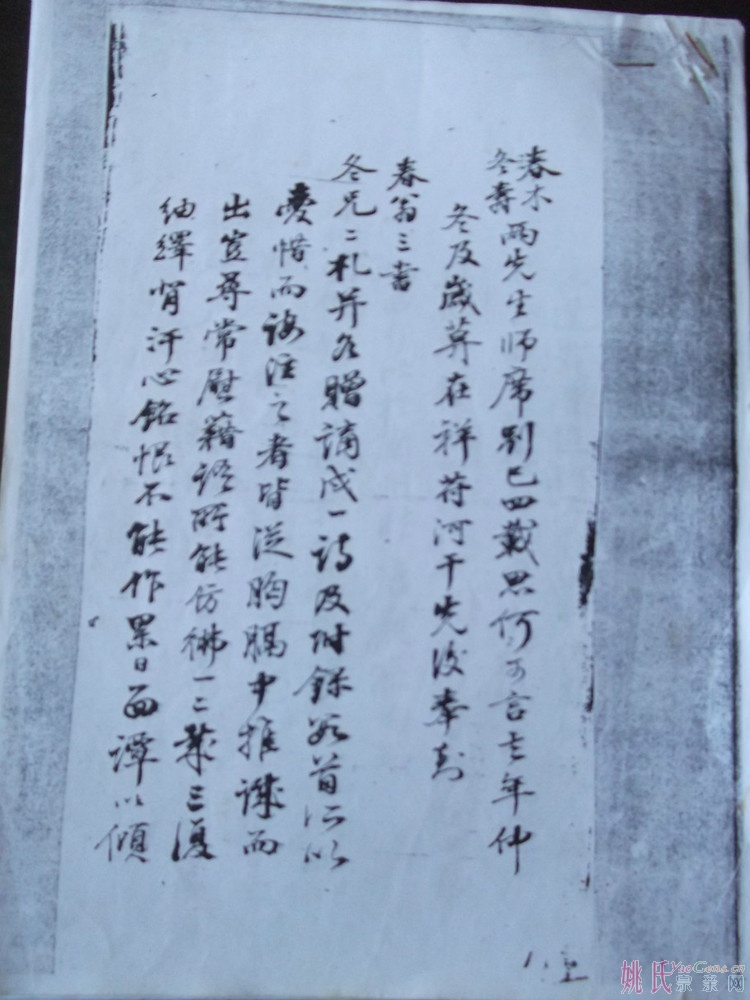 春木
冬壽兩先生師席別已四載思何可言去年仲
冬及歲莫在祥符河干先後奉到
春翁三書
冬兄二札并各贈誦成一詩及附錄數首所以
愛惜而誨注之者皆從胸膈中推誠而
出豈尋常慰藉語所能仿彿一二哉三復
紬繹背汗心銘恨不能作累日面譚以傾
姚氏宗亲网
YaoGens.cn